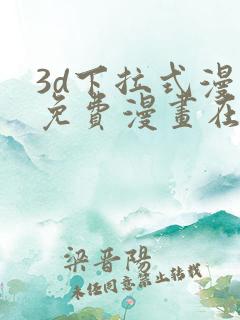 3d下拉式漫
免費漫畫在
梁晋陽
未任同意禁止转载